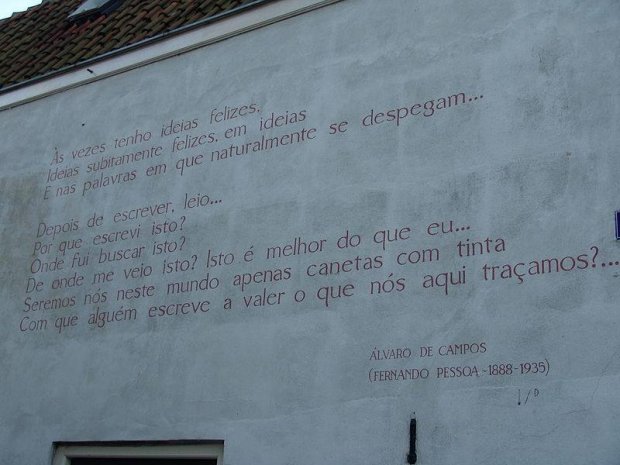 Às vezes tenho ideias felizes,
Ideias subitamente felizes, em ideias
E nas palavras em que naturalmente se despegam...
Depois de escrever, leio...
Por que escrevi isto?
Onde fui buscar isto?
De onde me veio isto? Isto é melhor do que eu...
Seremos nós neste mundo apenas canetas com tinta
Com que alguém escreve a valer o que nós aqui traçamos?...
ÁLVARO DE CAMPOS
(FERNANDO PESSOA -1888-1935)